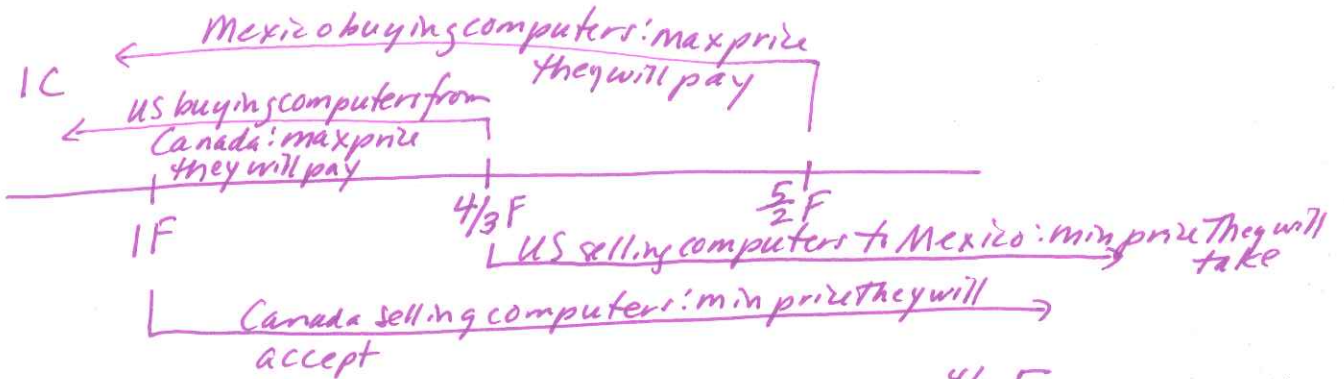 Mexico buying computers: max price
they will pay
1C
US buying computers from
Canada: max price
they will pay
1F
4/3 F
5/2 F
US selling computers to Mexico: min price They will
take
Canada selling computers: min price they will
accept